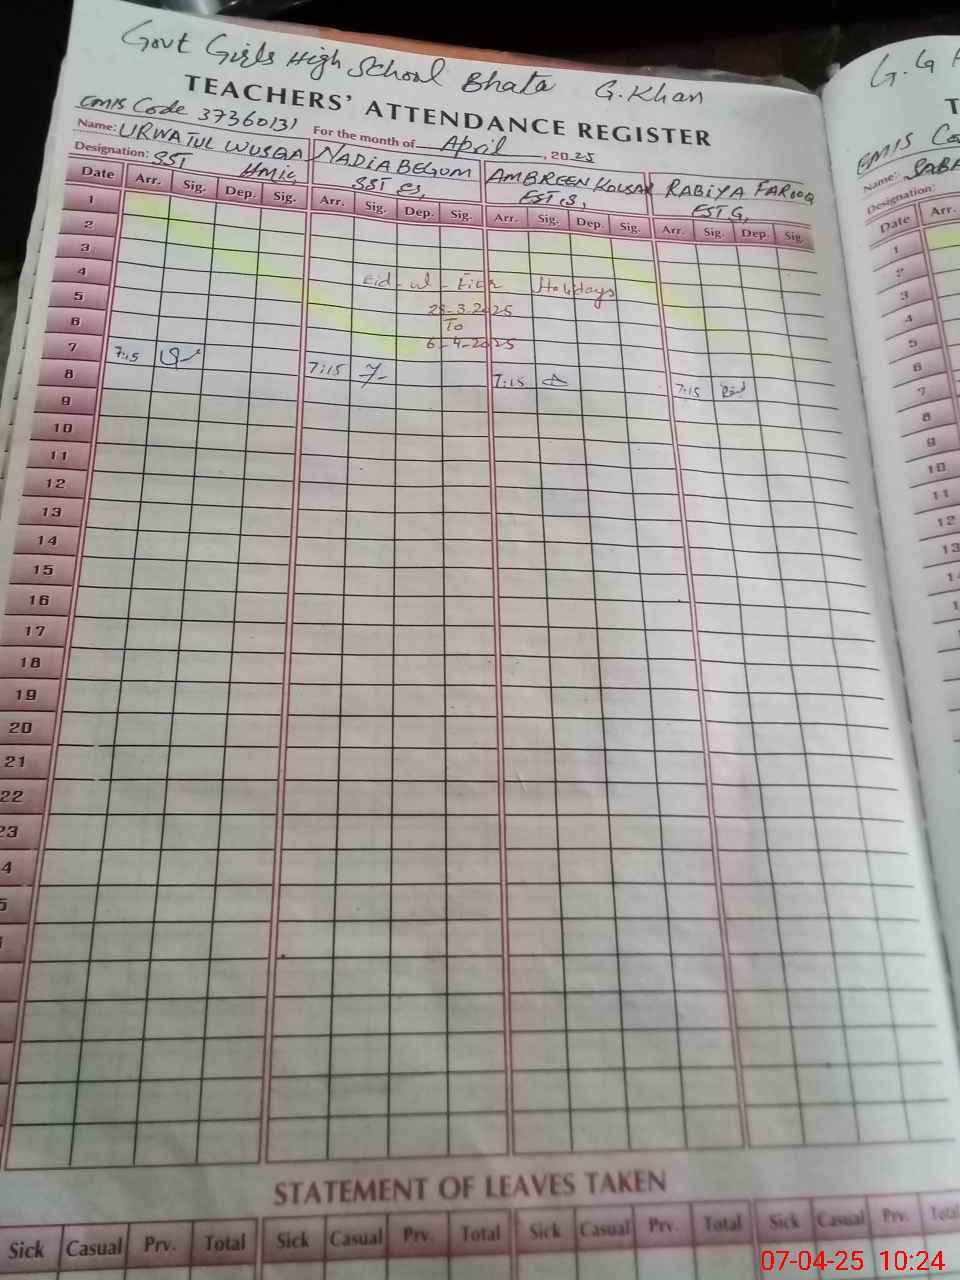 Govt Girls High School Bhata G.Khan
TEACHERS' ATTENDANCE REGISTER
EMIS Code 37360131
For the month of April, 2025
Name: URWATUL WUSQA NADIA BEGUM AMBREEN KOUSAR RABIYA FAROOQ
Designation: SST SST EST EST
Date Arr. Sig. Dep. Sig. Arr. Sig. Dep. Sig. Arr. Sig. Dep. Sig. Arr. Sig. Dep. Sig.
1
2
3
4 Eid-ul-Fitr Holidays
5 28-3-2025
6 To
6-4-2025
7 7:15 7:15 7:15 7:15
8
9
10
11
12
13
14
15
16
17
18
19
20
21
22
23
4
5
STATEMENT OF LEAVES TAKEN
Sick Casual Prv. Total Sick Casual Prv. Total Sick Casual Prv. Total Sick Casual Prv. Total
G.G
T
EMIS
Name:
Designation:
Date Arr.
1
2
3
4
5
6
7
8
9
10
11
12
13
07-04-25 10:24